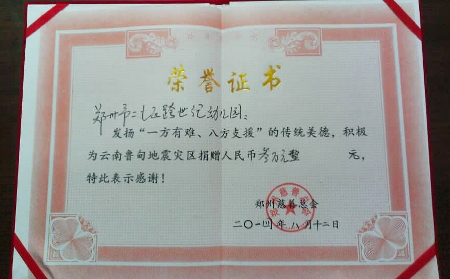 荣誉证书
郑州市二七区跨世纪幼儿园：
发扬“一方有难、八方支援”的传统美德，积极
为云南鲁甸地震灾区捐赠人民币叁万元整 元，
特此表示感谢！
郑州慈善总会
二〇一四年八月十二日